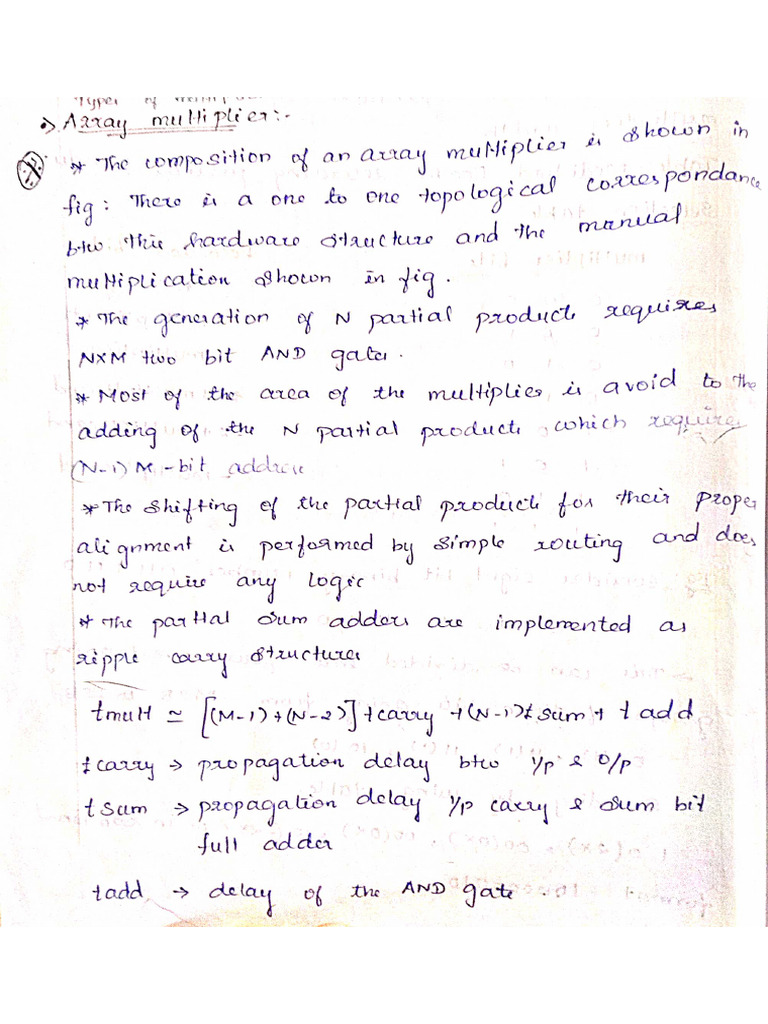 Types of
→ Array multiplier:-
* The composition of an array multiplier is shown in
fig: There is a one to one topological correspondance
btw this hardware structure and the manual
multiplication shown in fig.
* The generation of N partial products requires
NXM two bit AND gates.
* Most of the area of the multiplier is avoid to the
adding of the N partial products which require
(N-1) M-bit address
* The shifting of the partial products for their proper
alignment is performed by simple routing and does
not require any logic
* The partial sum adders are implemented as
ripple carry structures
tmult ≃ [(M-1)+(N-2)]tcarry +(N-1)tsum+ t add
tcarry → propagation delay btw i/p & o/p
tsum → propagation delay i/p carry & sum bit
full adder
tadd → delay of the AND gate.